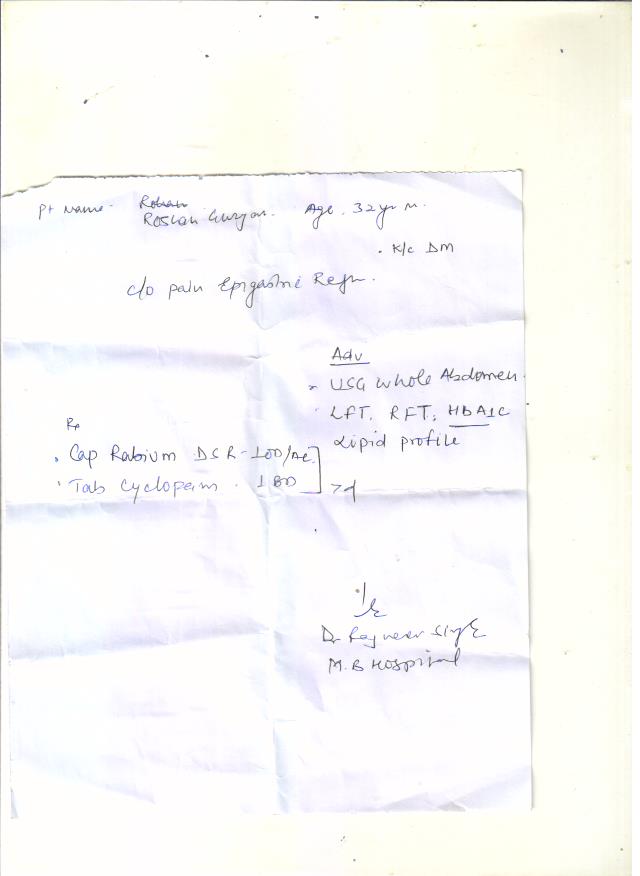 Pt Name - Rohan
Roshan Age. 32 yr M.
. K/c DM
c/o pain Epigastric Regn.
Adv
USG Whole Abdomen
LFT, RFT, HBA1C
Lipid profile
Rx
. Cap Rabium DSR - 1OD/AC
. Tab Cyclopam . 1 BD
Dr Singh
M.B Hospital